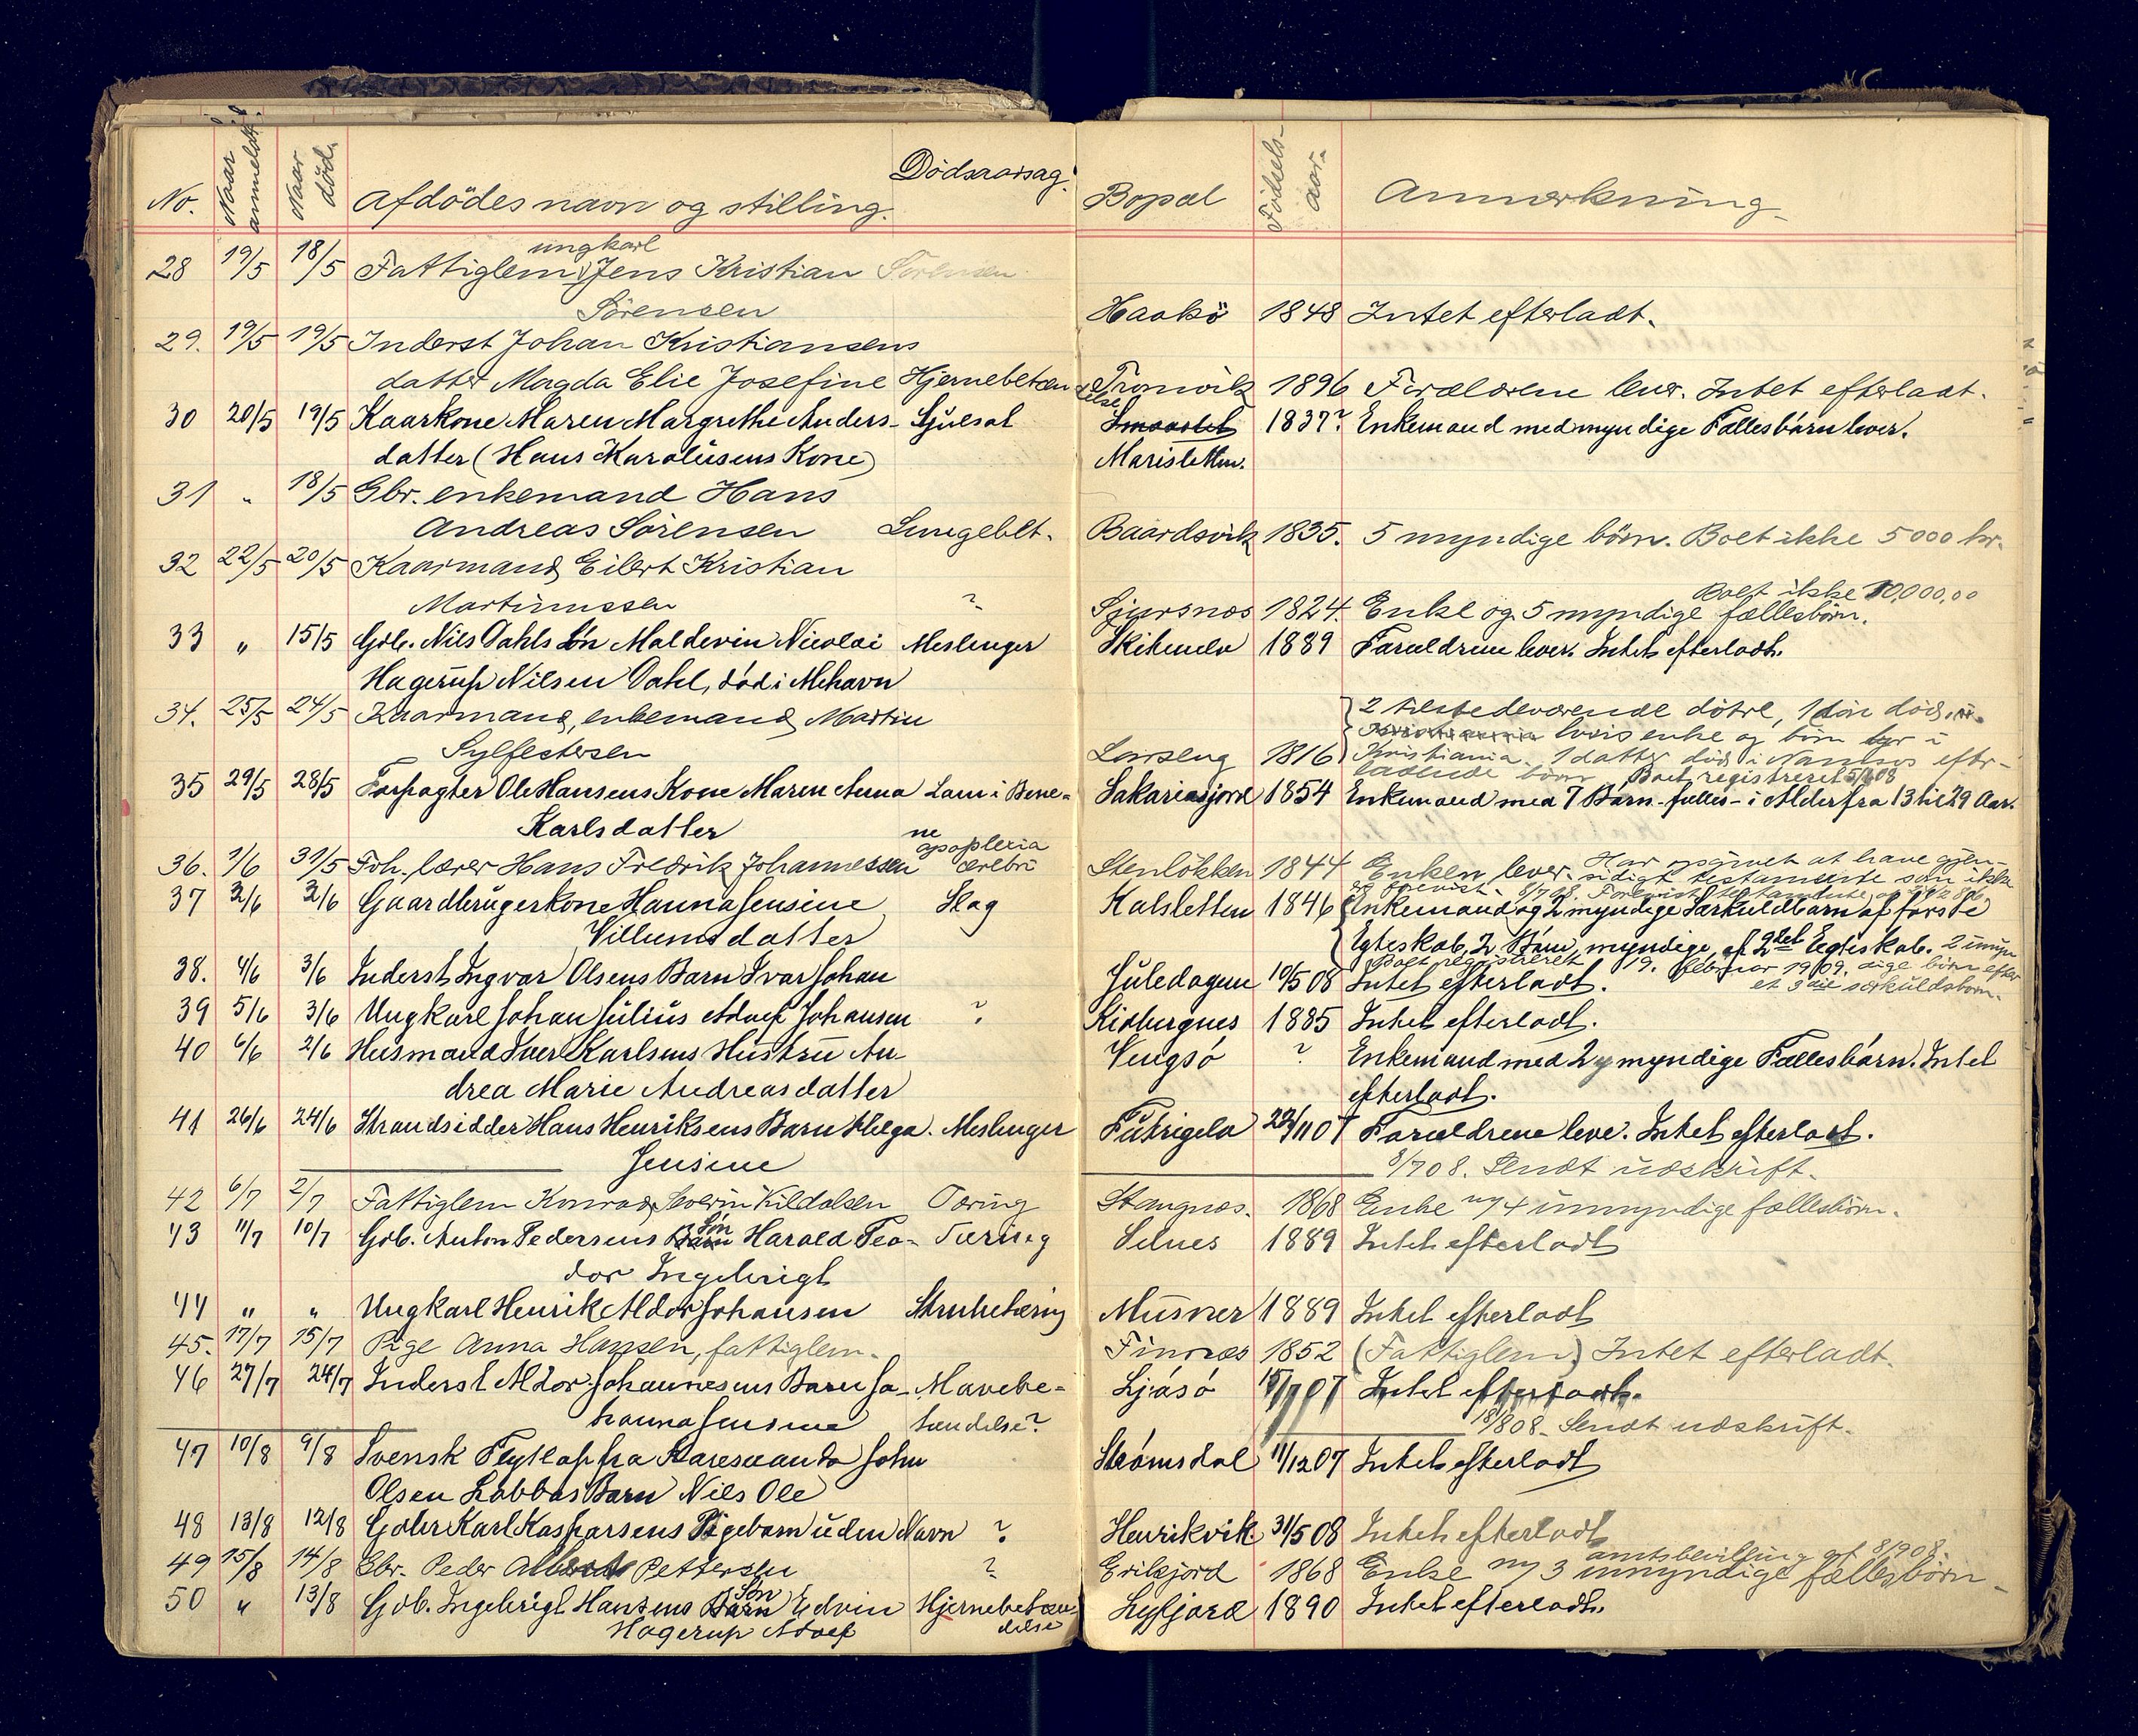 No. Naar anmeldt. Naar död. Afdödes navn og stilling. Dödsaarsag. Bopæl Födsels-aar. Anmærkning.
ungkarl
28 19/5 18/5 Fattiglem Jens Kristian Sörensen
Sörensen Haakö 1848 Intet efterladt.
29. 19/5 19/5 Inderst Johan Kristiansens
datter Magda Elie Josefine Hjernebetændelse Tromvik 1896 Forældrene lever. Intet efterladt.
30 20/5 19/5 Kaarkone Maren Margrethe Anders- Sjulsot 1837? Enkemand med myndige Fællesbørn lever.
datter (Hans Karolüsens Kone) Marisletten.
31 " 18/5 Gbr. enkemand Hans
Andreas Sörensen Lungebet. Baardsvik 1835. 5 myndige börn. Boet ikke 5000 kr.
32 22/5 20/5 Kaarmand Eilert Kristian
Boet ikke 10,000,00
Martinussen ? Sjursnæs 1824. Enke og 5 myndige fællesbörn.
33 " 15/5 Gdb. Nils Dahls Søn Maldevin Nicolai Meslinger 1889 Forældrene lever. Intet efterladt.
Hagerup Nilsen Dahl, død i Mehavn
34. 25/5 24/5 Kaarmand, enkemand Martin 2 tilstedeværende döttre, 1 sön död.
hvis enke og börn bor i
Sylfestersen Larseng 1816 Kristiania. 1 datter död i Namsos efter-
ladende börn. Boet registreret
35 29/5 28/5 Forpagter Ole Hansens Kone Maren Anna Lam i Bene- Sakariasjord 1854 Enkemand med 7 Børn - fælles - i Alder fra 13 til 29 Aar.
Karlsdatter ne
36. 1/6 31/5 Fhv. lærer Hans Fredrik Johannessen apoplexia cerebri Stenlökken 1844 Enken lever. Har opgivet at have gjen-
sidigt testamente som ikke
37 3/6 2/6 Gaardbrugerkone Hanna Jensine Slag Kalsletten 1846 Enkemand og 2 myndige Særkuldbørn af første
Villumsdatter Egteskab, 2 Børn, myndige, af 2det Egteskab. 2 umyn-
dige börn efter
Boet registreret 19. februar 1909. et 3die særkuldsbarn.
38. 4/6 3/6 Inderst Ingvar Olsens Barn Ivar Johan Juledagen 10/5 08 Intet efterladt.
39 5/6 3/6 Ungkarl Johan Julius Adolf Johansen ? Kidbergnes 1885 Intet efterladt.
40 6/6 2/6 Husmand Iver Karlsens Hustru An- Vengsø ? Enkemand med 2 myndige Fællesbørn. Intet
drea Marie Andreasdatter efterladt.
41 26/6 24/6 Strandsidder Hans Henriksens Barn Helga Meslinger Futrigelv 22/11 07 Forældrene leve. Intet efterladt.
Jensine 8/7 08. Sendt udskrift.
42 6/7 2/7 Fattiglem Konrad Severin Kildalsen Tæring Stangnæs. 1868 Enke m/ 4 umyndige fællesbörn.
43 11/7 10/7 Gdb. Anton Pedersens Søn Harald Teo- Tæring Selnes 1889 Intet efterladt
dor Ingebrigt
44 " " Ungkarl Henrik Aldor Johansen Strubetæring Musvær 1889 Intet efterladt
45. 17/7 15/7 Pige Anna Hansen, fattiglem. Finnæs 1852 (Fattiglem) Intet efterladt.
46 27/7 24/7 Inderst Aldor Johannesens Barn Jo- Mavebe- Ljøsø 15/7 07 Intet efterladt.
hanna Jensine tændelse? 18/8 08. Sendt udskrift.
47 10/8 9/8 Svensk Flytlap fra Karesuando John Strømsdal 11/12 07 Intet efterladt
Olsen Labbas Barn Nils Ole
48 13/8 12/8 Gdbr Karl Kasparsens Pigebarn uden Navn ? Henrikvik 31/5 08 Intet efterladt
amtsbevilling af 8/9 08.
49 15/8 14/8 Gbr. Peder Albert Pettersen ? Erikjord 1868 Enke m/ 3 umyndige fællesbörn.
50 " 13/8 Gdb. Ingebrigt Hansens Søn Edvin Hjernebetæn- Lyfjord 1890 Intet efterladt.
Hagerup Adolf delse